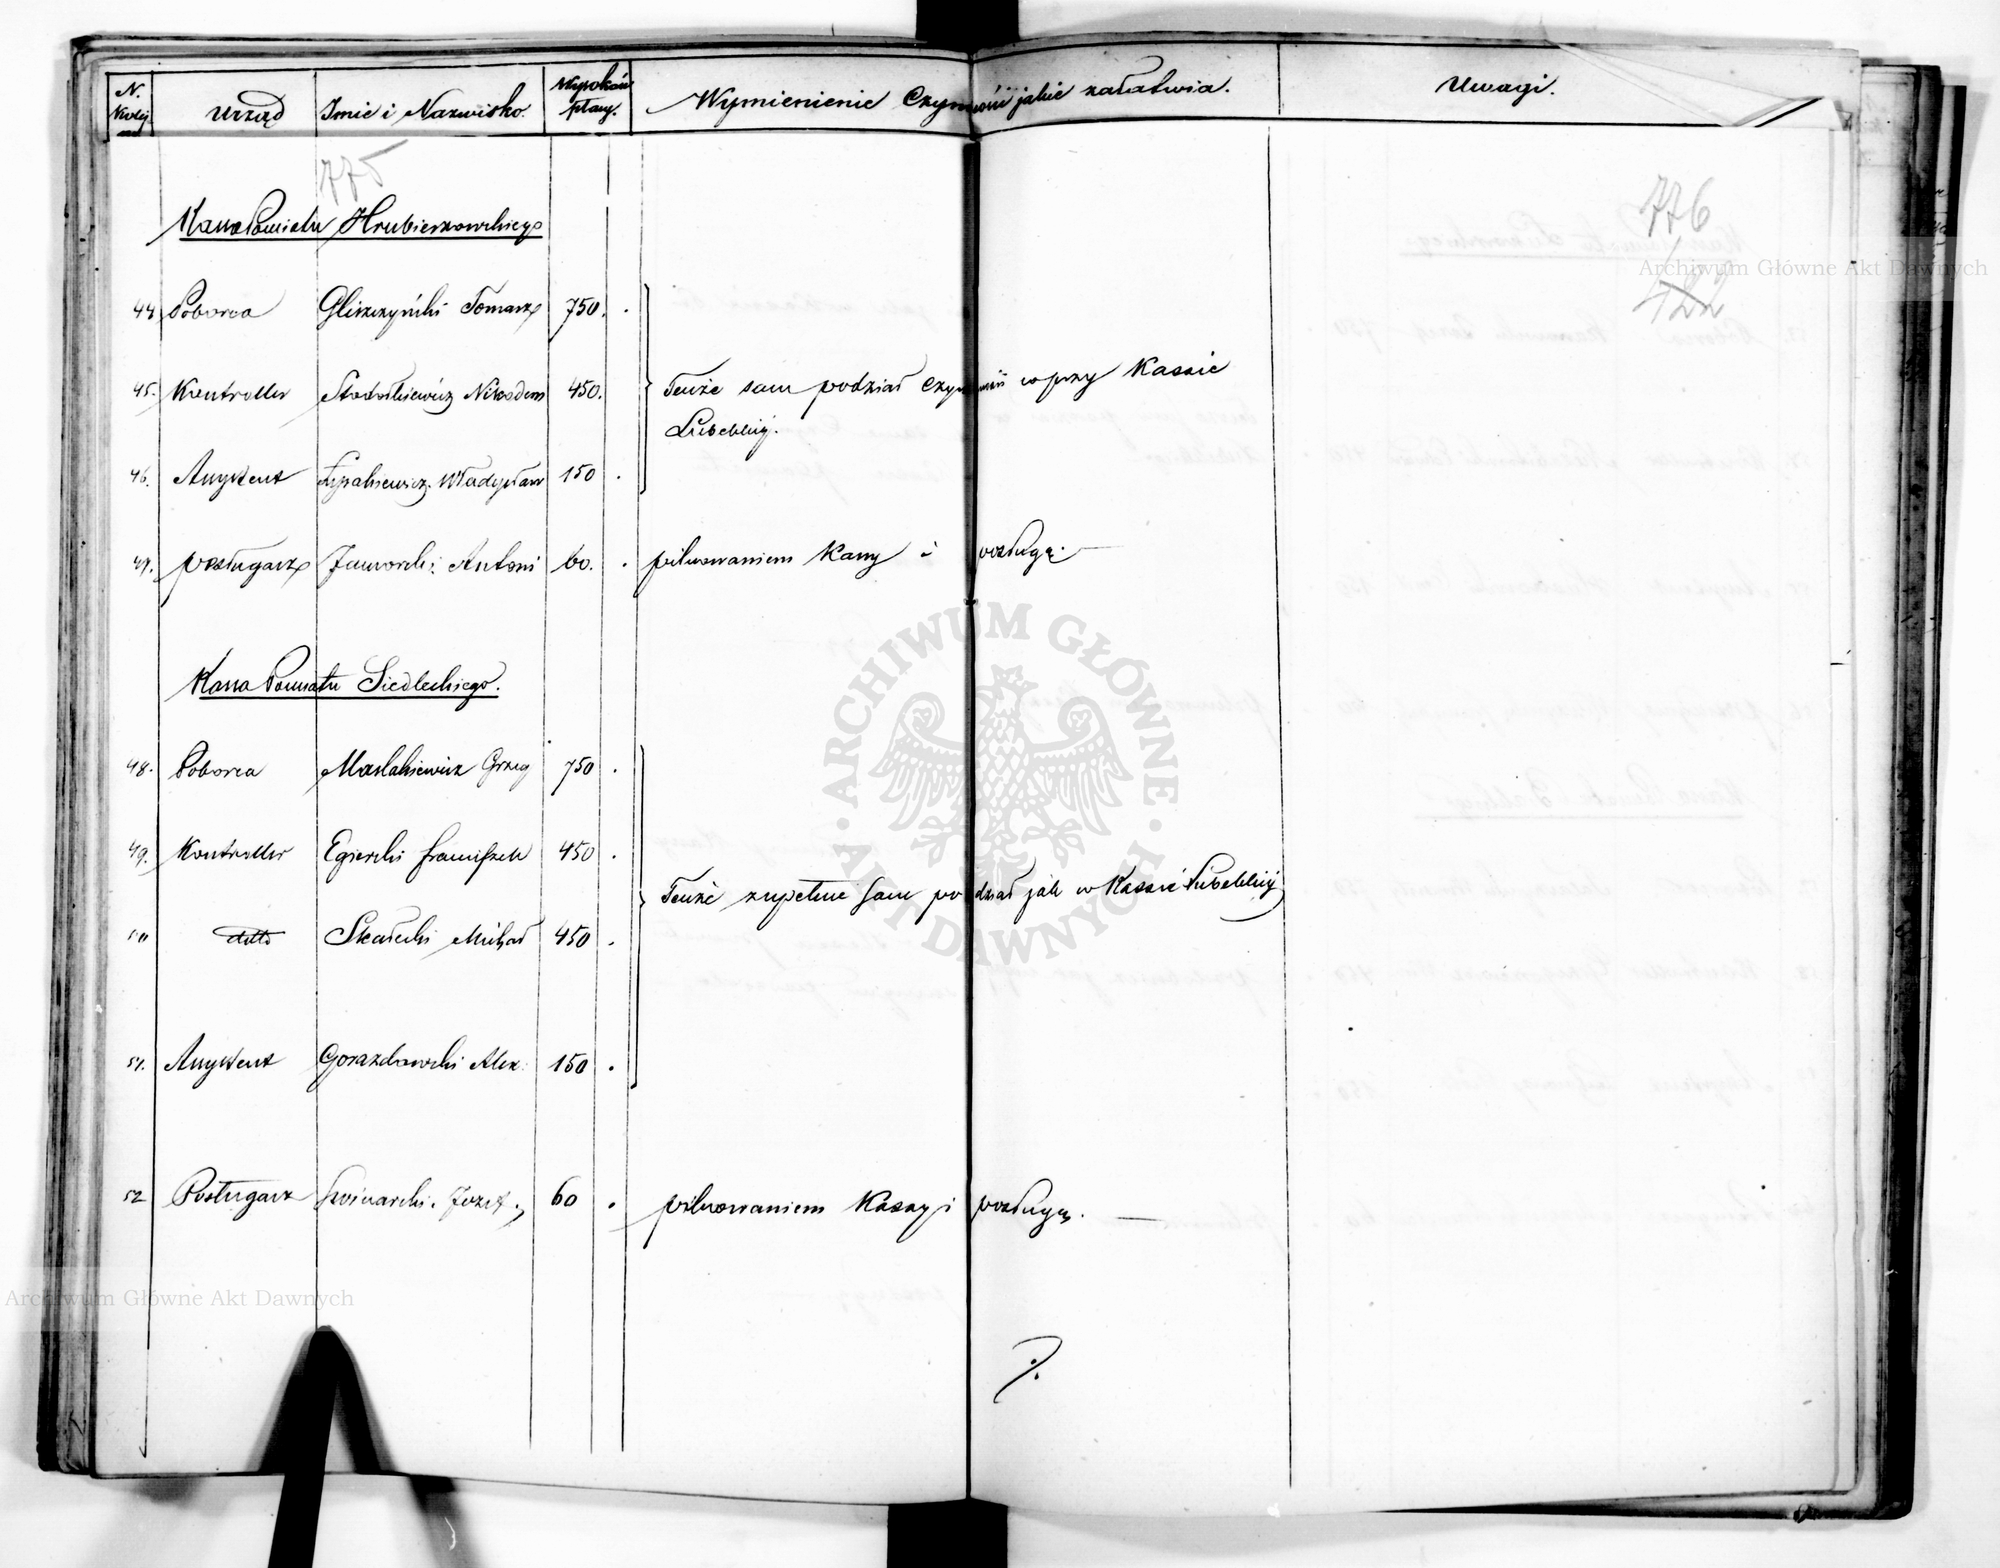 N. Kolej. Urząd Imie i Nazwisko. Wysokość płacy. Wymienienie Czynności jakie załatwia. Uwagi.
775
776
Kassa Powiatu Hrubieszowskiego
Archiwum Główne Akt Dawnych
422
44. Poborca Gliszczyński Tomasz 750.
45. Kontroller Nikodem 450. Tenże sam podział Czynności co przy Kassie
Lubelskiej.
46. Assystent Władysław 150.
47. posługacz Jaworski Antoni 60. pilnowaniem Kassy i posługą.
Kassa Powiatu Siedleckiego.
48. Poborca Maslakiewicz Grzeg 750.
49. Kontroller Egierski Franciszek 450.
Tenże zupełnie sam podział jak w Kassie Lubelskiej
50 ditto Skalecki Michał 450.
51. Assystent Gorazdowski Alex. 150.
52 Posługacz Świnarski Józef 60. pilnowaniem Kassy i posługą.
Archiwum Główne Akt Dawnych
ARCHIWUM GŁÓWNE AKT DAWNYCH